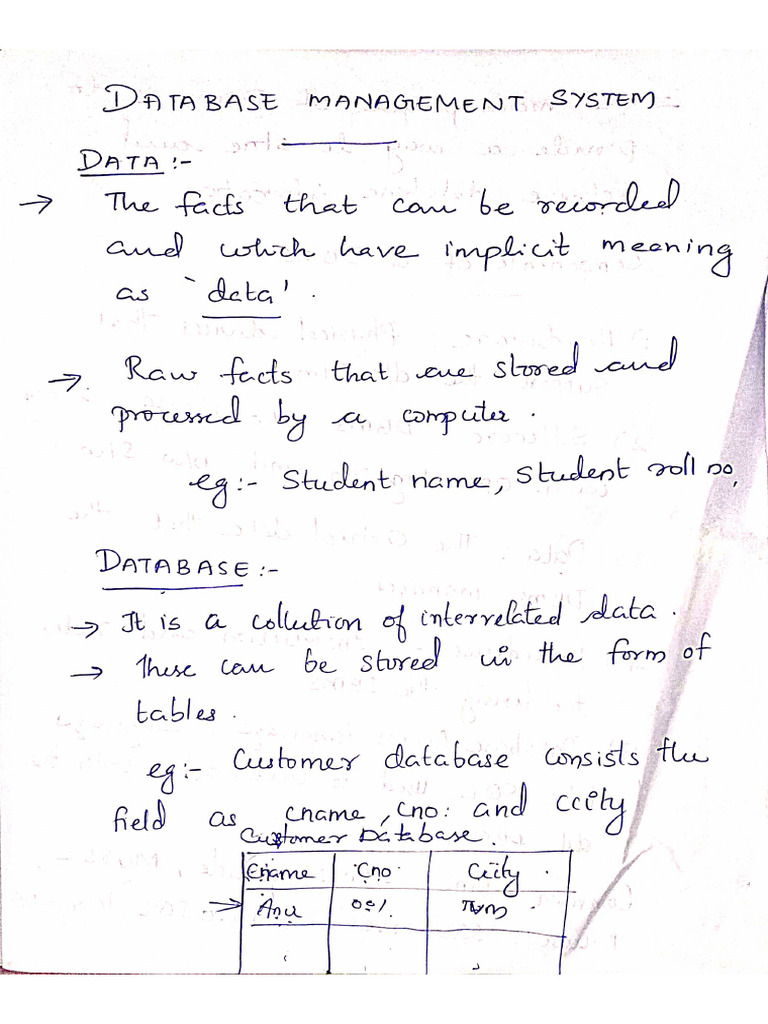 DATABASE MANAGEMENT SYSTEM
DATA :-
→ The facts that can be recorded
and which have implicit meaning
as `data'.
→ Raw facts that are stored and
processed by a computer.
eg:- Student name, Student roll no,
DATABASE :-
→ It is a collection of interrelated data.
→ These can be stored in the form of
tables.
eg:- Customer database consists the
field as cname, cno: and ccity
Customer Database.
Cname Cno. Ccity.
→ Anu 001. TVM.